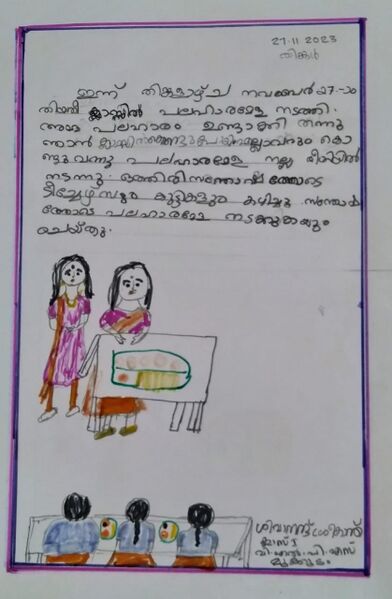 27.11.2023
തിങ്കൾ
ഇന്ന് തിങ്കളാഴ്ച നവംബർ 27-ാം
തിയതി ക്ലാസ്സിൽ പലഹാരമേള നടത്തി.
അമ്മ പലഹാരം ഉണ്ടാക്കി തന്നു
ഞാൻ കൊ
ണ്ടുവന്നു പലഹാരമേള നല്ല രീതിയിൽ
നടന്നു. ഒത്തിരി സന്തോഷത്തോടെ
ടീച്ചേഴ്സും കുട്ടികളും കഴിച്ചു സന്തോഷ
ത്തോടെ പലഹാരമേള നടക്കുകയും
ചെയ്തു.
ക്ലാസ് 1
വി.എൽ.പി.എസ്